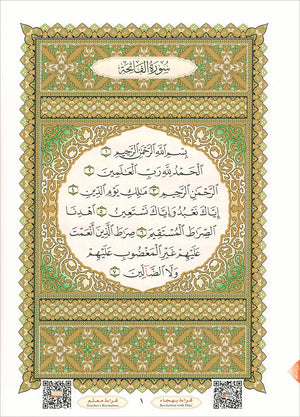 سورة الفاتحة
بسم الله الرحمن الرحيم ١
الحمد لله رب العالمين ٢
الرحمن الرحيم ٣ مالك يوم الدين ٤
إياك نعبد وإياك نستعين ٥ اهدنا
الصراط المستقيم ٦ صراط الذين أنعمت
عليهم غير المغضوب عليهم
ولا الضالين ٧
قراءة معلم
Teacher's Recitation
١
قراءة بهجاء
Recitation with Hijaa